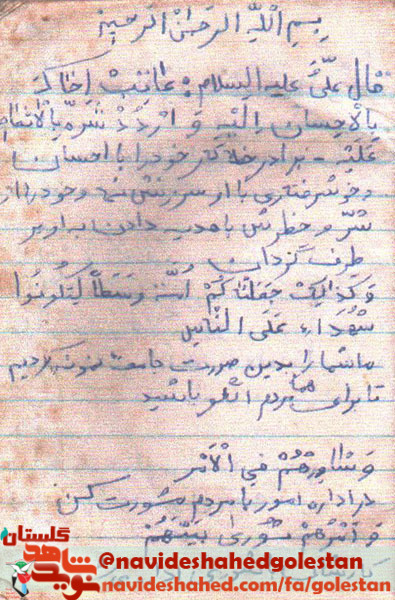 بِسمِ اللّهِ الرَّحمنِ الرَّحیمِ
قال علیٌّ علیه السلام: عاتِب اخاکَ
بِالْاِحسانِ اِلَیْهِ وَ ارْدُدْ شَرَّهُ بِالْاِنعامِ
عَلَیْهِ - برادر خطاکار خود را با احسان
و خوشرفتاری با او سرزنش کن و خود را از
شرّ و خطرش با هدیه دادن به او بر
طرف گردان
وَ کَذالِکَ جَعَلْناکُمْ اُمَّةً وَسَطاً لِتَکُونُوا
شُهَدَاءَ عَلَی النّاسِ
ما شما را بدین صورت جامعه نمونه کردیم
تا برای همه مردم الگو باشید
وَ شاوِرْهُمْ فِی الْاَمْرِ
در اداره امور با مردم مشورت کن
وَ اَمْرُهُمْ شُوریٰ بَیْنَهُمْ
گلستان
نوید شاهد
@navideshahedgolestan
navideshahed.com/fa/golestan